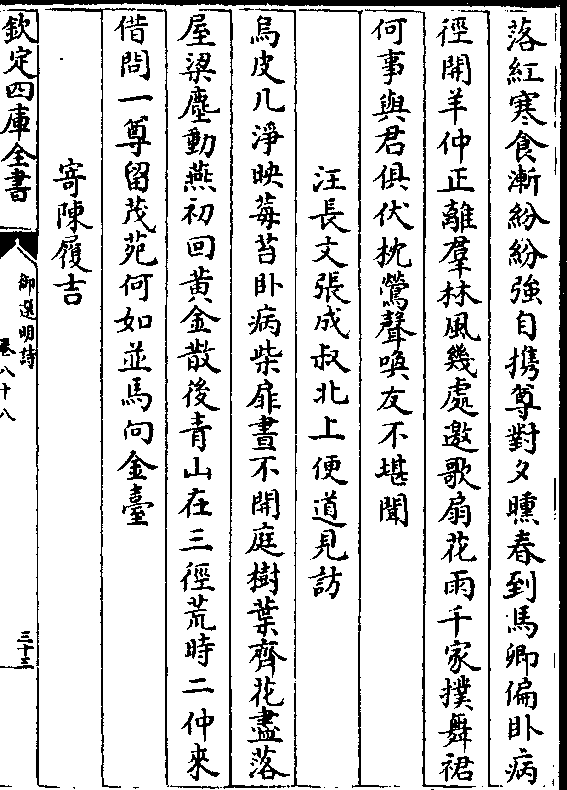 落紅寒食漸紛紛強自携尊對夕曛春到馬卿偏卧病
徑開羊仲正離羣林風幾處邀歌扇花雨千家撲舞裙
何事與君俱伏枕鶯聲喚友不堪聞
汪長文張成叔北上便道見訪
烏皮几淨映莓苔卧病柴扉晝不開庭樹葉齊花盡落
屋梁塵動燕初回黄金散後青山在三徑荒時二仲來
借問一尊留茂苑何如並馬向金臺
寄陳履吉
欽定四庫全書
御選明詩
卷八十八
三十三